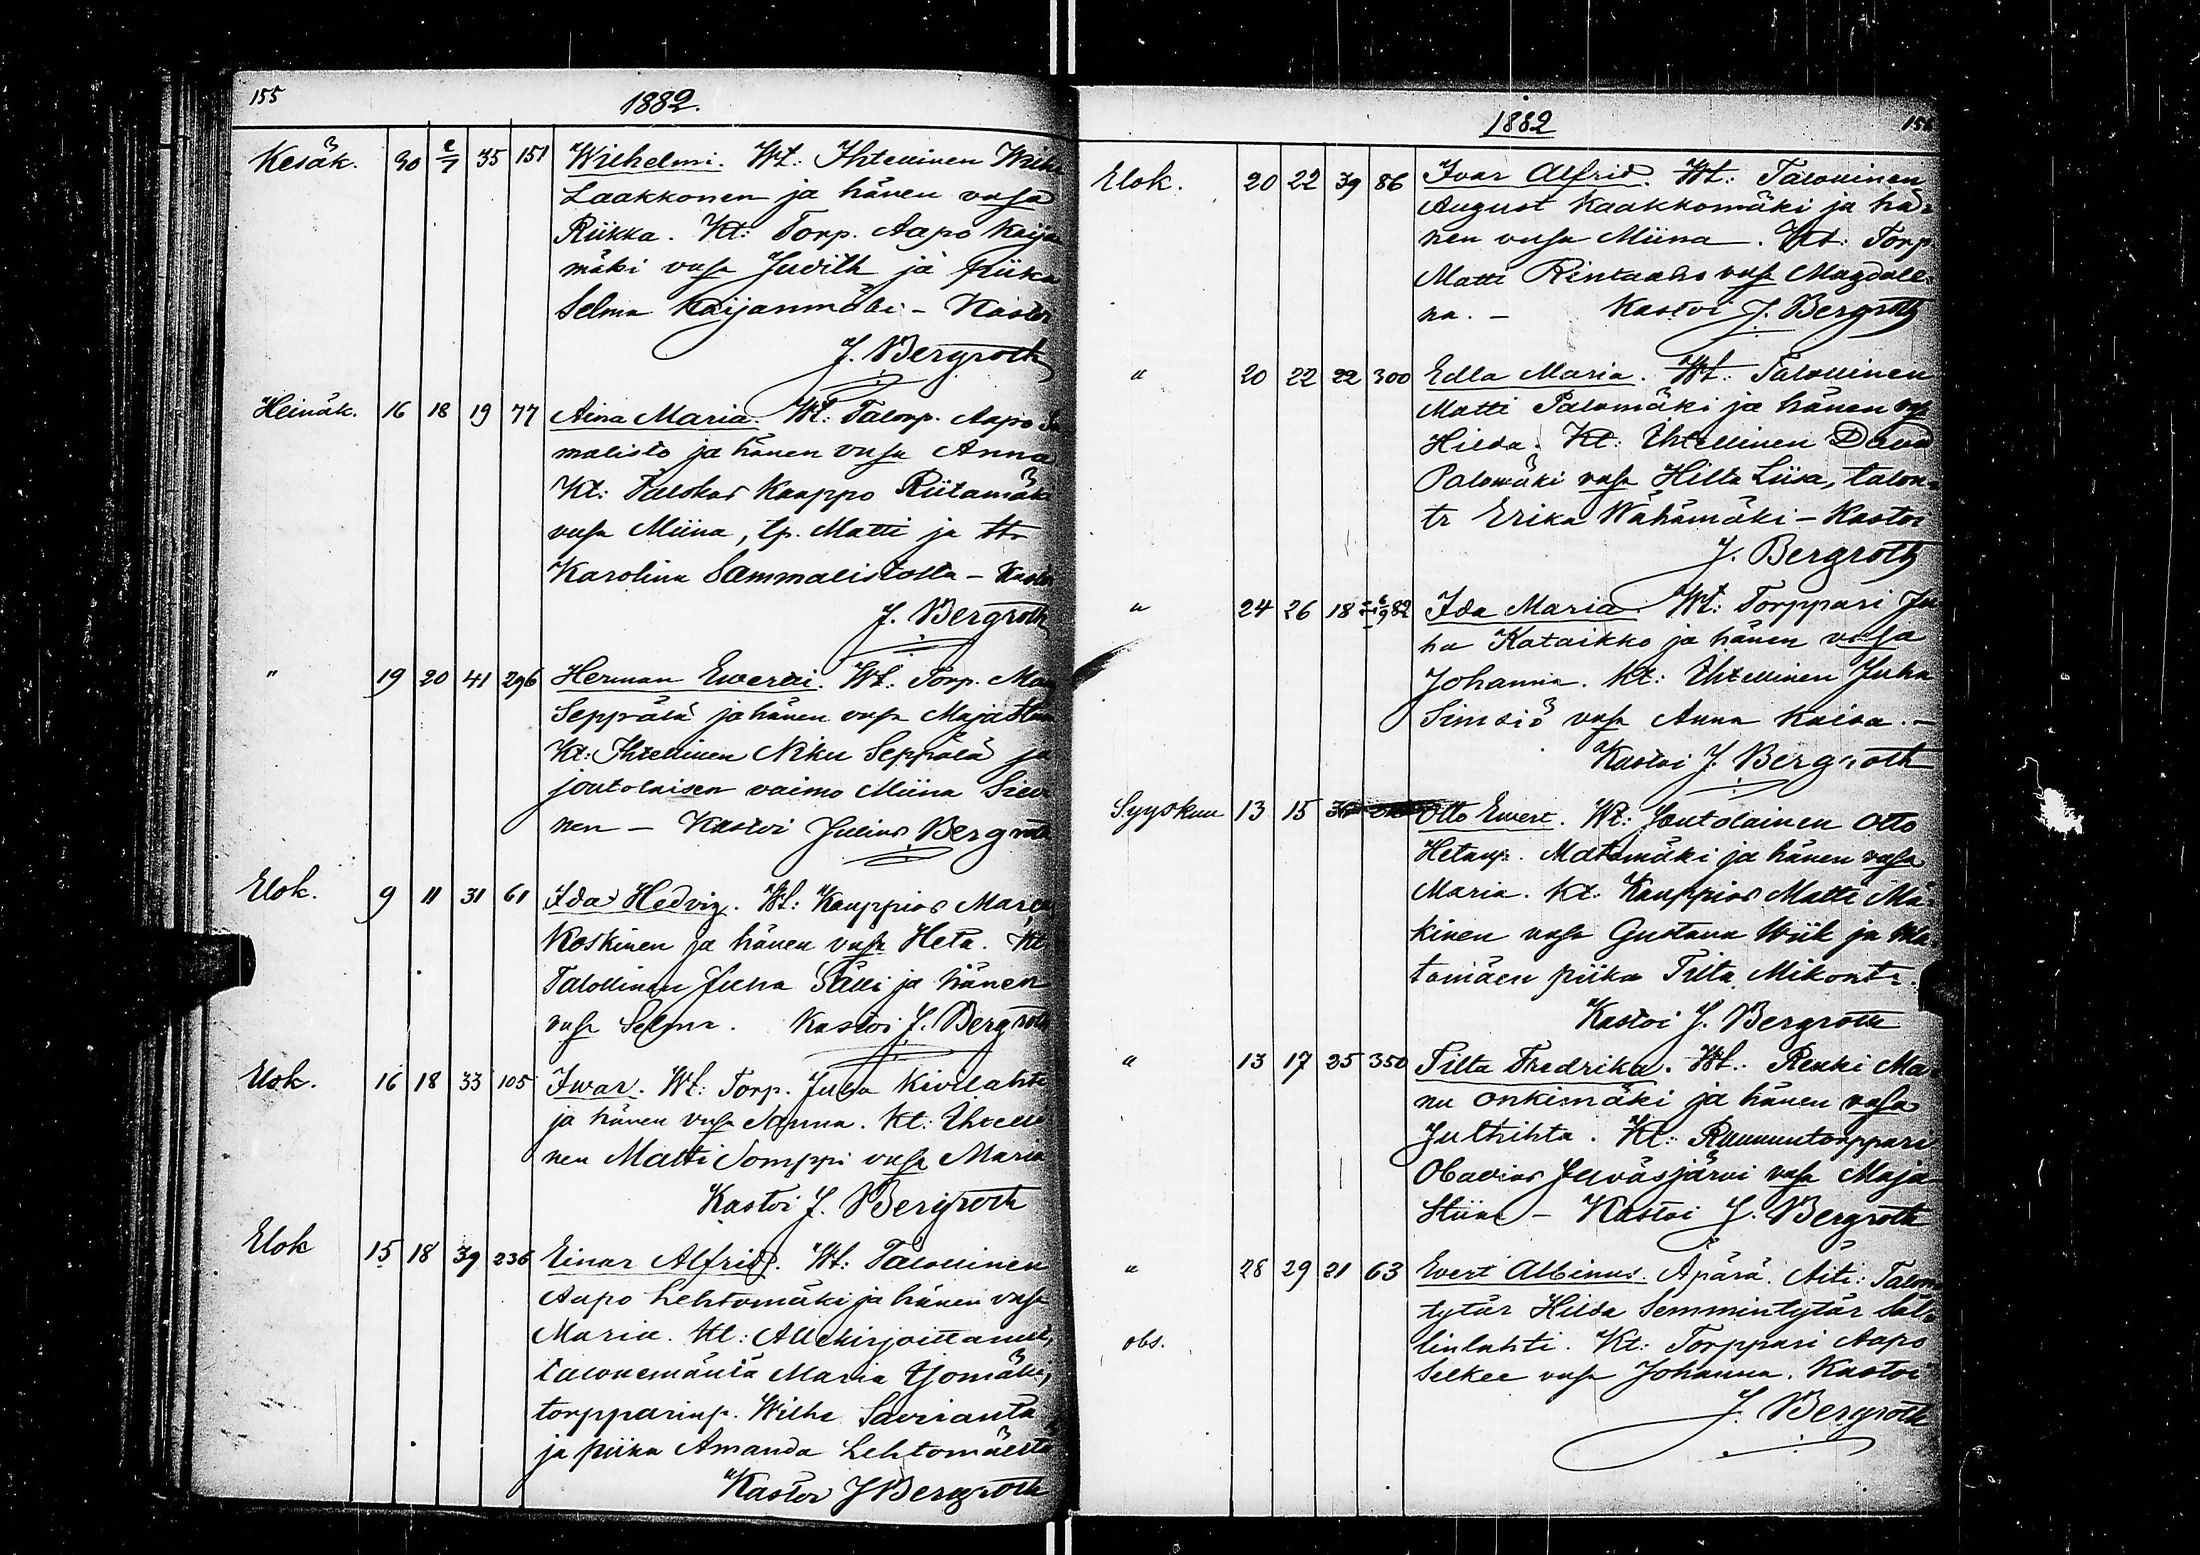 155
1882.
Kesäk. 30 2/7 35 151 Wilhelmi. Wt: Ihtellinen
Laakkonen ja hänen vaſa
Riikka. Kt: Torp. Aapo Kaija
mäki vaſa Judith ja piika
Selma Kaijanmäki - Kastoi
J. Bergroth
Heinäk. 16 18 19 77 Aina Maria. Wt: Talonp. Aapo
malisto ja hänen vaſa Anna
Kt: Talokas Kaappo Riitamäki
vaſa Miina, tp. Matti ja tr
Karolina Sammalistolta - Kastoi
J. Bergroth
" 19 20 41 296 Herman Ewerti. Wt: Torp.
Seppälä ja hänen vaſa Maja
Kt: Ihtellinen Niku Seppälä ja
joutolaisen vaimo Miina
nen - Kastoi Julius Bergroth
Elok. 9 11 31 61 Ida Hedvig. Wt: Kauppias
Koskinen ja hänen vaſa Heta. Kt
Talollinen Juha Sälli ja hänen
vaſa Selma. Kastoi J. Bergroth
Elok. 16 18 33 105 Iwar. Wt: Torp. Juha Kivilahti
ja hänen vaſa Sanna. Kt: Ihtelli
nen Matti Somppi vaſa Maria
Kastoi J. Bergroth
Elok 15 18 39 236 Einar Alfrid. Wt: Talollinen
Aapo Lehtomäki ja hänen vaſa
Maria. Kt: Allekirjoittanut,
talonemäntä Maria
torpparinp. Wilhe Saviranta
ja piika Amanda Lehtomäeltä
Kastoi J Bergroth
1882
156
Elok. 20 22 39 86 Ivar Alfrid. Wt: Talollinen
August Kaakkomäki ja hä-
nen vaſa Miina. Kt: Torp
Matti Rintaaho vaſa Magdale-
na. - Kastoi J. Bergroth
" 20 22 22 300 Edla Maria. Wt: Talollinen
Matti Palomäki ja hänen vaſa
Hilda. Kt: Ihtellinen David
Palomäki vaſa Hilta Liisa, talon-
tr Erika Wähämäki - Kastoi
J. Bergroth
" 24 26 18 82 Ida Maria. Wt: Torppari Ju
ha Kataikko ja hänen vaſa
Johanna. Kt: Ihtellinen Juha
Simsiö vaſa Anna Kaisa. -
Kastoi J. Bergroth
Syyskuu 13 15 Otto Ewert. Wt: Joutolainen Otto
Hetanp. Matomäki ja hänen vaſa
Maria. Kt. Kauppias Matti Mä-
kinen vaſa Gustava Wiik ja Ma-
tomäen piika Tilta Mikontr.
Kastoi J. Bergroth
" 13 17 25 350 Tilta Fredrika. Wt: Renki Ma
nu Onkimäki ja hänen vaſa
Kt: Ruununtorppari
Obadias Juväsjärvi vaſa Maja
Stiina - Kastoi J. Bergroth
" 28 29 21 63 Evert Albinus. Äpärä. Äiti: Talon
tytär Hilda Semmintytär Säl-
obs. linlahti. Kt: Torppari Aapo
Selkee vaſa Johanna. Kastoi
J. Bergroth